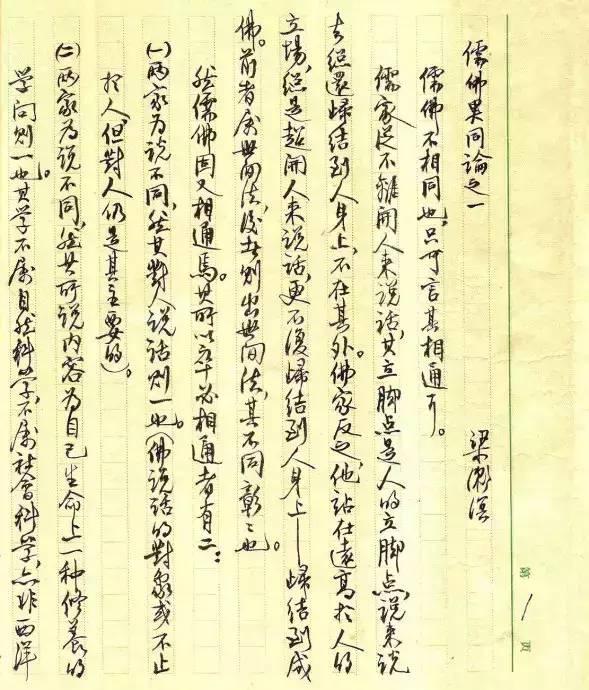 儒佛異同論之一
梁漱溟
儒佛不相同也，只可言其相通耳。
儒家從不離開人來說話，其立脚点是人的立脚点，說來說
去總還歸結到人身上，不在其外。佛家反之，他站在遠高於人的
立場，總是超開人來說話，更不復歸結到人身上—歸結到成
佛。前者屬世間法，後者則出世間法，其不同彰彰也。
然儒佛固又相通焉。其所以卒必相通者有二：
㈠两家为說不同，然其對人說話則一也。（佛說話的對象或不止
於人，但對人仍是其主要的）。
㈡两家为說不同，然其所說内容为自己生命上一种修養的
学问則一也。其学不属自然科学，不属社會科学，亦非西洋
第1页